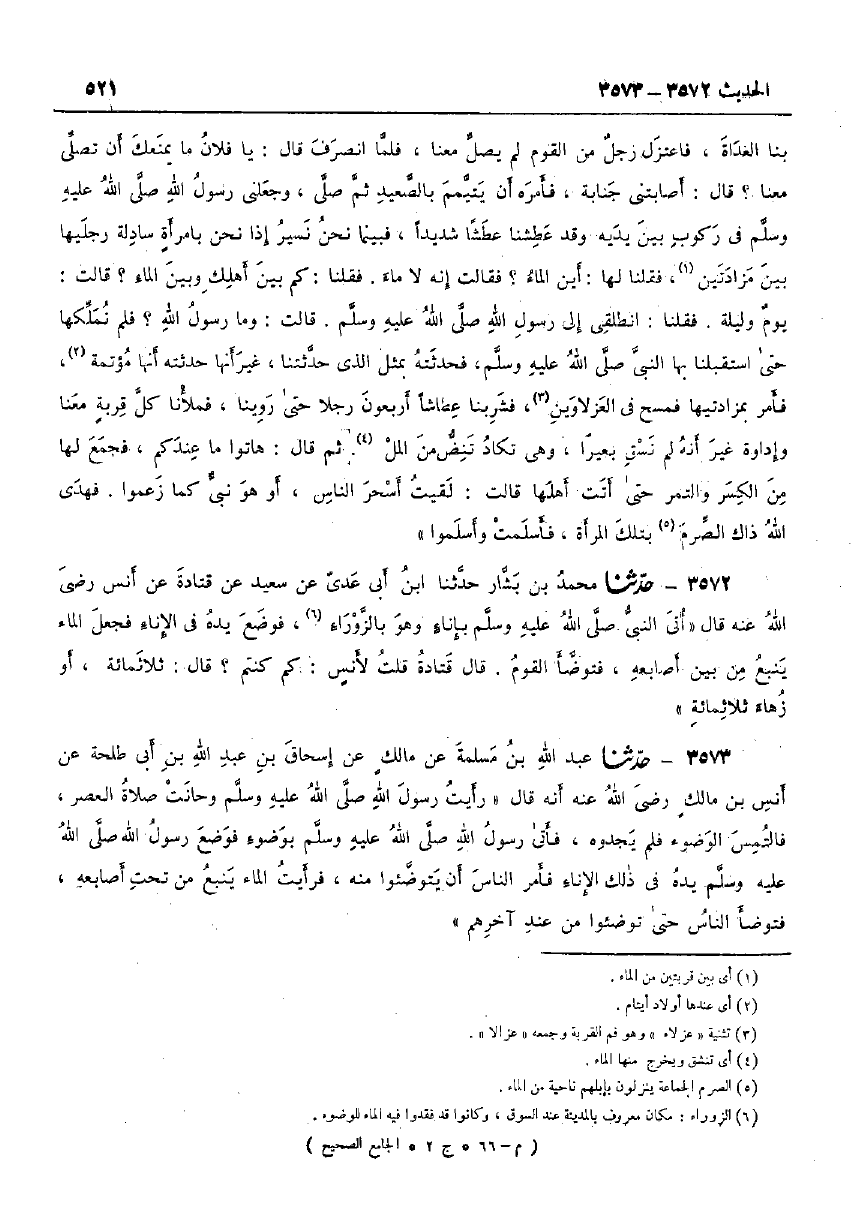 الحديث ٣٥٧٢ – ٣٥٧٣ ٥٢١
بنا الغدَاةَ ، فاعتزَل رَجلٌ من القوم لم يصلِّ معنا ، فلمَّا انصرَفَ قال : يا فلانُ ما يمنَعكَ أن تصلَّى
معنا ؟ قال : أصابتنى جَنابة ، فأمرَه أن يَتيَّممَ بالصَّعيدِ ثمَّ صلَّى ، وجعَلنى رسولُ اللهِ صلَّى اللهُ عليهِ
وسلَّم فى رَكوبٍ بينَ يدَيه وقد عَطِشنا عطَشًا شديداً ، فبينما نحنُ نَسيرُ إذا نحن بامرأةٍ سادِلة رِجليها
بينَ مَزادَتَين (١) ، فقلنا لها : أين الماءُ ؟ فقالت إنه لا ماءَ . فقلنا : كم بينَ أهلِكِ وبينَ الماء ؟ قالت :
يومٌ وليلة . فقلنا : انطلقِى إلى رسولِ اللهِ صلَّى اللهُ عليهِ وسلَّم . قالت : وما رسولُ اللهِ ؟ فلم نُمَلِّكها
حتىٰ استقبلنا بها النبىَّ صلَّى اللهُ عليهِ وسلَّم ، فحدثَتهُ بمثل الذى حدَّثتنا ، غيرَ أنها حدثته أنها مُؤتمة (٢) ،
فأمر بمزادتيها فمسح فى العَزلاوَينِ (٣) ، فشَرِبنا عِطاشاً أربعونَ رجلا حتىٰ رَوِينا ، فملأْنا كلَّ قِربةٍ معَنا
وإداوة غيرَ أنهُ لم نَسْقِ بَعيرًا ، وهى تكادُ تَنِضُّ منَ الملْ (٤). ثم قال : هاتوا ما عِندَكم ، فجمَعَ لها
مِنَ الكِسَر والتمر حتىٰ أتَت أهلَها قالت : لَقيتُ أسْحرَ الناسِ ، أو هوَ نبىٌّ كما زَعموا . فهدَى
اللهُ ذاك الصِّرمَ (٥) بتلكَ المرأة ، فأسلَمتْ وأسلَموا »
٣٥٧٢ – حدّثنا محمدُ بن بَشَّار حدَّثنا ابنُ أبى عَدىّ عن سعيد عن قتادةَ عن أنس رضىَ
اللهُ عنه قال « أُتىَ النبىُّ صلَّى اللهُ عليهِ وسلَّم بإناءٍ وهوَ بالزَّوْرَاءِ (٦) ، فوضَعَ يدهُ فى الإناءِ فجعلَ الماء
يَنبعُ مِن بين أصابعهِ ، فتوضَّأَ القومُ . قال قَتادةُ قلتُ لأنسٍ : كم كنتم ؟ قال : ثلاثَمائة ، أو
زُهاءَ ثلاثِمائةٍ »
٣٥٧٣ – حدّثنا عبد اللهِ بنُ مَسلمةَ عن مالكٍ عن إسحاقَ بنِ عبدِ اللهِ بنِ أبى طلحة عن
أنَسِ بن مالكٍ رضىَ اللهُ عنه أنه قال « رأيتُ رسولَ اللهِ صلَّى اللهُ عليهِ وسلَّم وحانَتْ صلاةُ العصر ،
فالتُمِسَ الوَضوء فلم يَجدوه ، فأُتىٰ رسولُ اللهِ صلَّى اللهُ عليهِ وسلَّم بوَضوءٍ فوَضعَ رسولُ الله صلَّى اللهُ
عليه وسلَّم يدهُ فى ذٰلك الإناءِ فأمر الناسَ أن يَتوضَّئوا منه ، فرأيتُ الماء يَنبعُ من تحتِ أصابعهِ ،
فتوضأَ الناسُ حتىٰ توضئوا من عندِ آخرِهم »
(١) أى بين قربتين من الماء .
(٢) أى عندها أولاد أيتام .
(٣) تثنية « عزلاء » وهو فم القربة وجمعه « عزالا » .
(٤) أى تنشق ويخرج منها الماء .
(٥) الصرم الجماعة ينزلون بإبلهم ناحية من الماء .
(٦) الزوراء : مكان معروف بالمدينة عند السوق ، وكانوا قد فقدوا فيه الماء للوضوء .
( م – ٦٦ * ج ٢ * الجامع الصحيح )